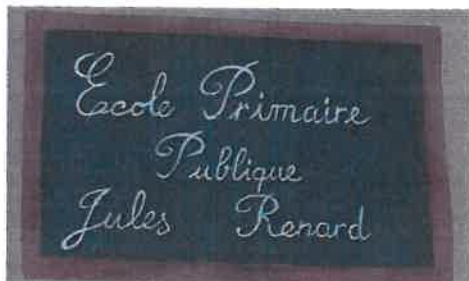 Ecole Primaire
Publique
Jules Renard